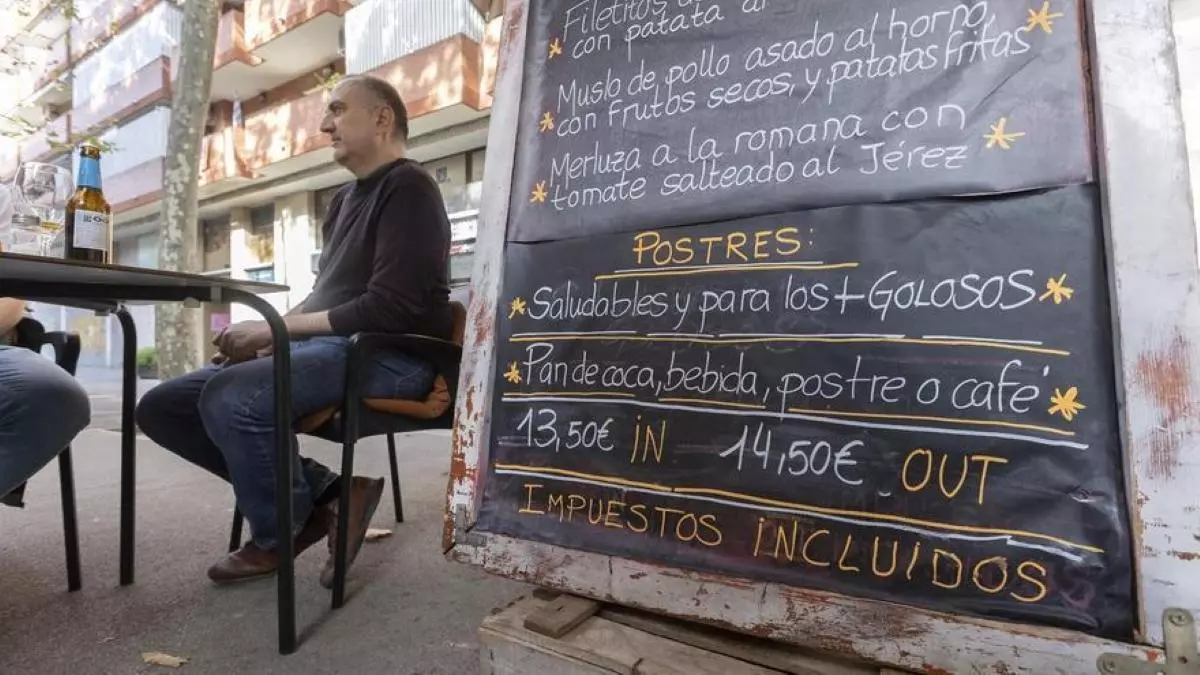 Filetitos
con patata al
Muslo de pollo asado al horno,
con frutos secos, y patatas fritas
Merluza a la romana con
tomate salteado al Jérez
POSTRES:
Saludables y para los + GOLOSOS
Pan de coca, bebida, postre o café
13,50€ IN 14,50€ OUT
IMPUESTOS INCLUIDOS